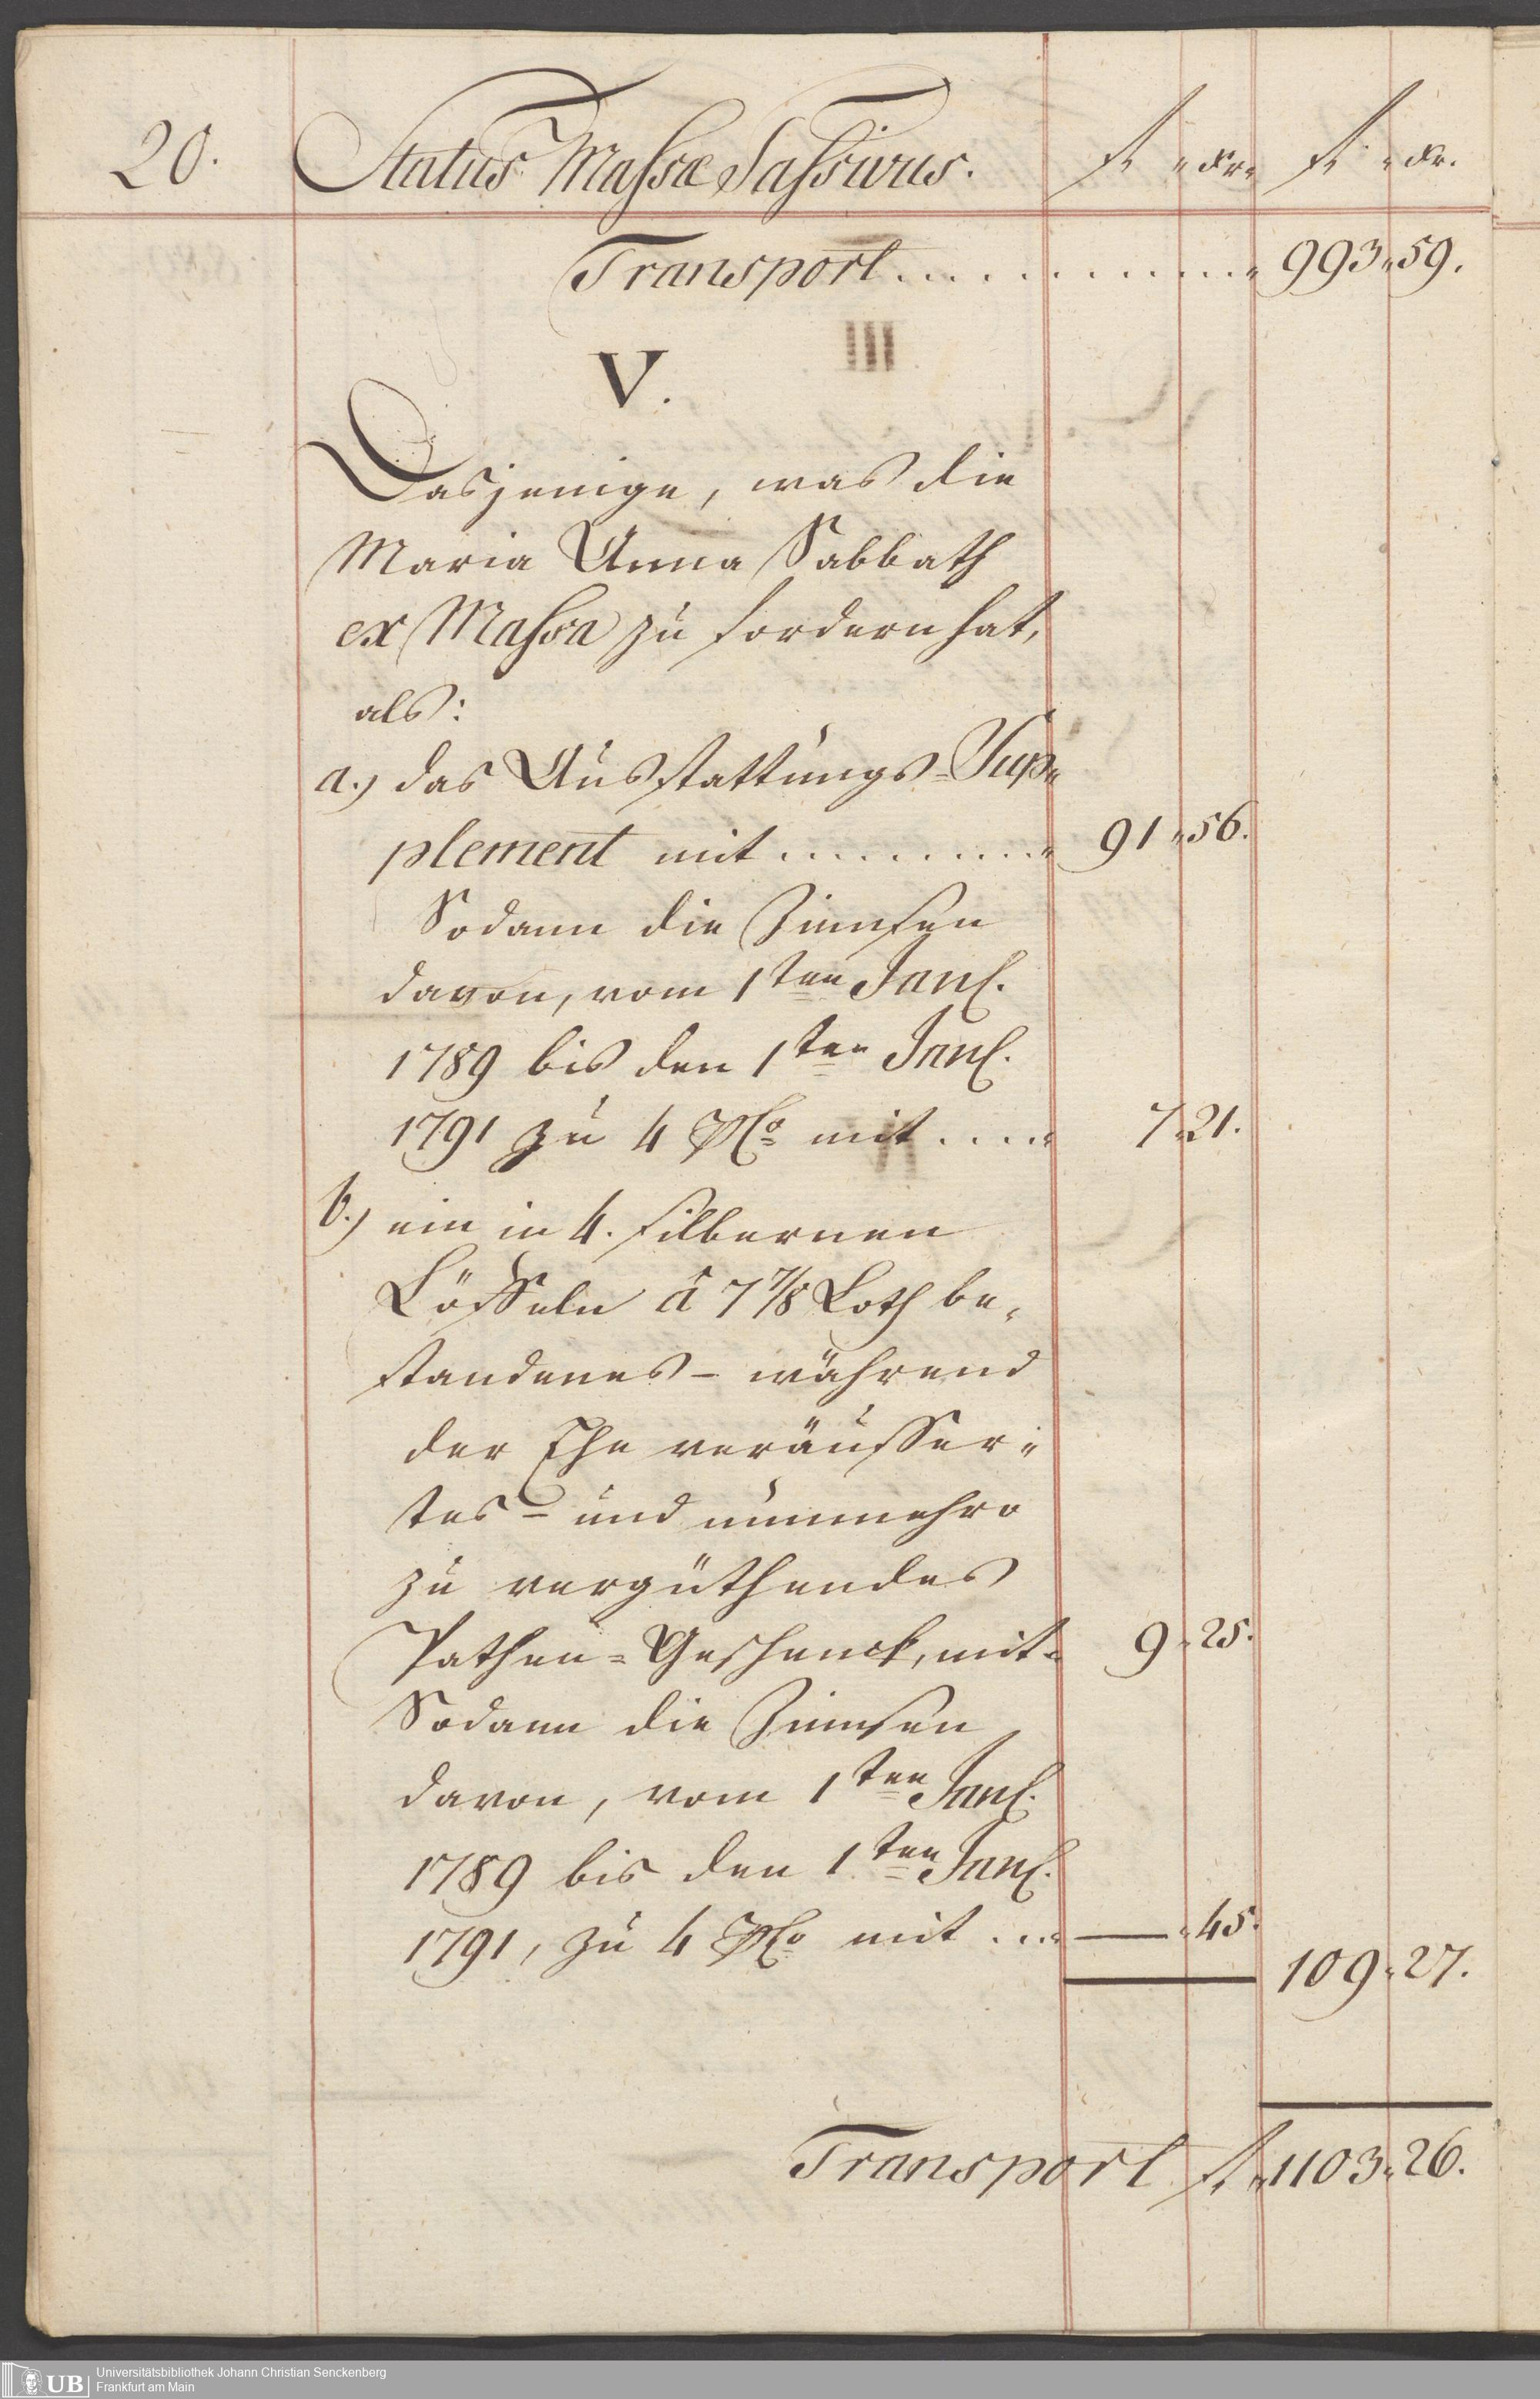 20. Status Massæ Passivus. fl. kr. fl. kr.
Transport............. 993. 59.
V.
Dasjenige, was die
Maria Anna Sabbath
ex Massa zu fordern hat,
als:
a.) das Ausstattungs-Sup=
plement mit .......... 91. 56.
Sodann die Zinnsen
davon, vom 1ten Jan.
1789 bis den 1ten Jan.
1791 zu 4 pCo mit ..... 7. 21.
b.) ein in 4. silbernen
Löffeln à 7 7/8 Loth be=
standenes - während
der Ehe veräusser=
tes - und nunmehro
zu vergüthendes
Pathen=Geschenck, mit 9. 25.
Sodann die Zinnsen
davon, vom 1ten Jan.
1789 bis den 1ten Jan.
1791, zu 4 pCo mit ... — 45.
109. 27.
Transport fl. 1103. 26.
UB
Universitätsbibliothek Johann Christian Senckenberg
Frankfurt am Main